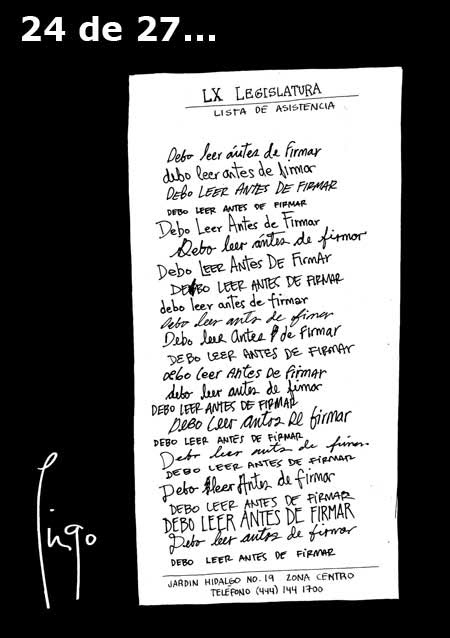 24 de 27...
LX LEGISLATURA
LISTA DE ASISTENCIA
Debo leer ántes de Firmar
debo leer antes de firmar
DEBO LEER ANTES DE FIRMAR
DEBO LEER ANTES DE FIRMAR
Debo Leer Antes de Firmar
Debo leer ántes de firmar
Debo LEER ANTES DE FIRMAR
DEBO LEER ANTES DE FIRMAR
debo leer antes de firmar
Debo leer ants de firmar
Debo leer Antes de Firmar
DEBO LEER ANTES DE FIRMAR
debo leer Antes De FIRMAR
debo leer antes de firmar
DEBO LEER ANTES DE FIRMAR
Debo Leer antes De firmar
DEBO LEER ANTES DE FIRMAR
Debo leer ants de firmar
DEBO LEER ANTES DE FIRMAR
Debo leer Antes de firmar
DEBO LEER ANTES DE FIRMAR
DEBO LEER ANTES DE FIRMAR
Debo leer antes de firmar
DEBO LEER ANTES DE FIRMAR
JARDIN HIDALGO NO. 19 ZONA CENTRO
TELÉFONO (444) 144 1700